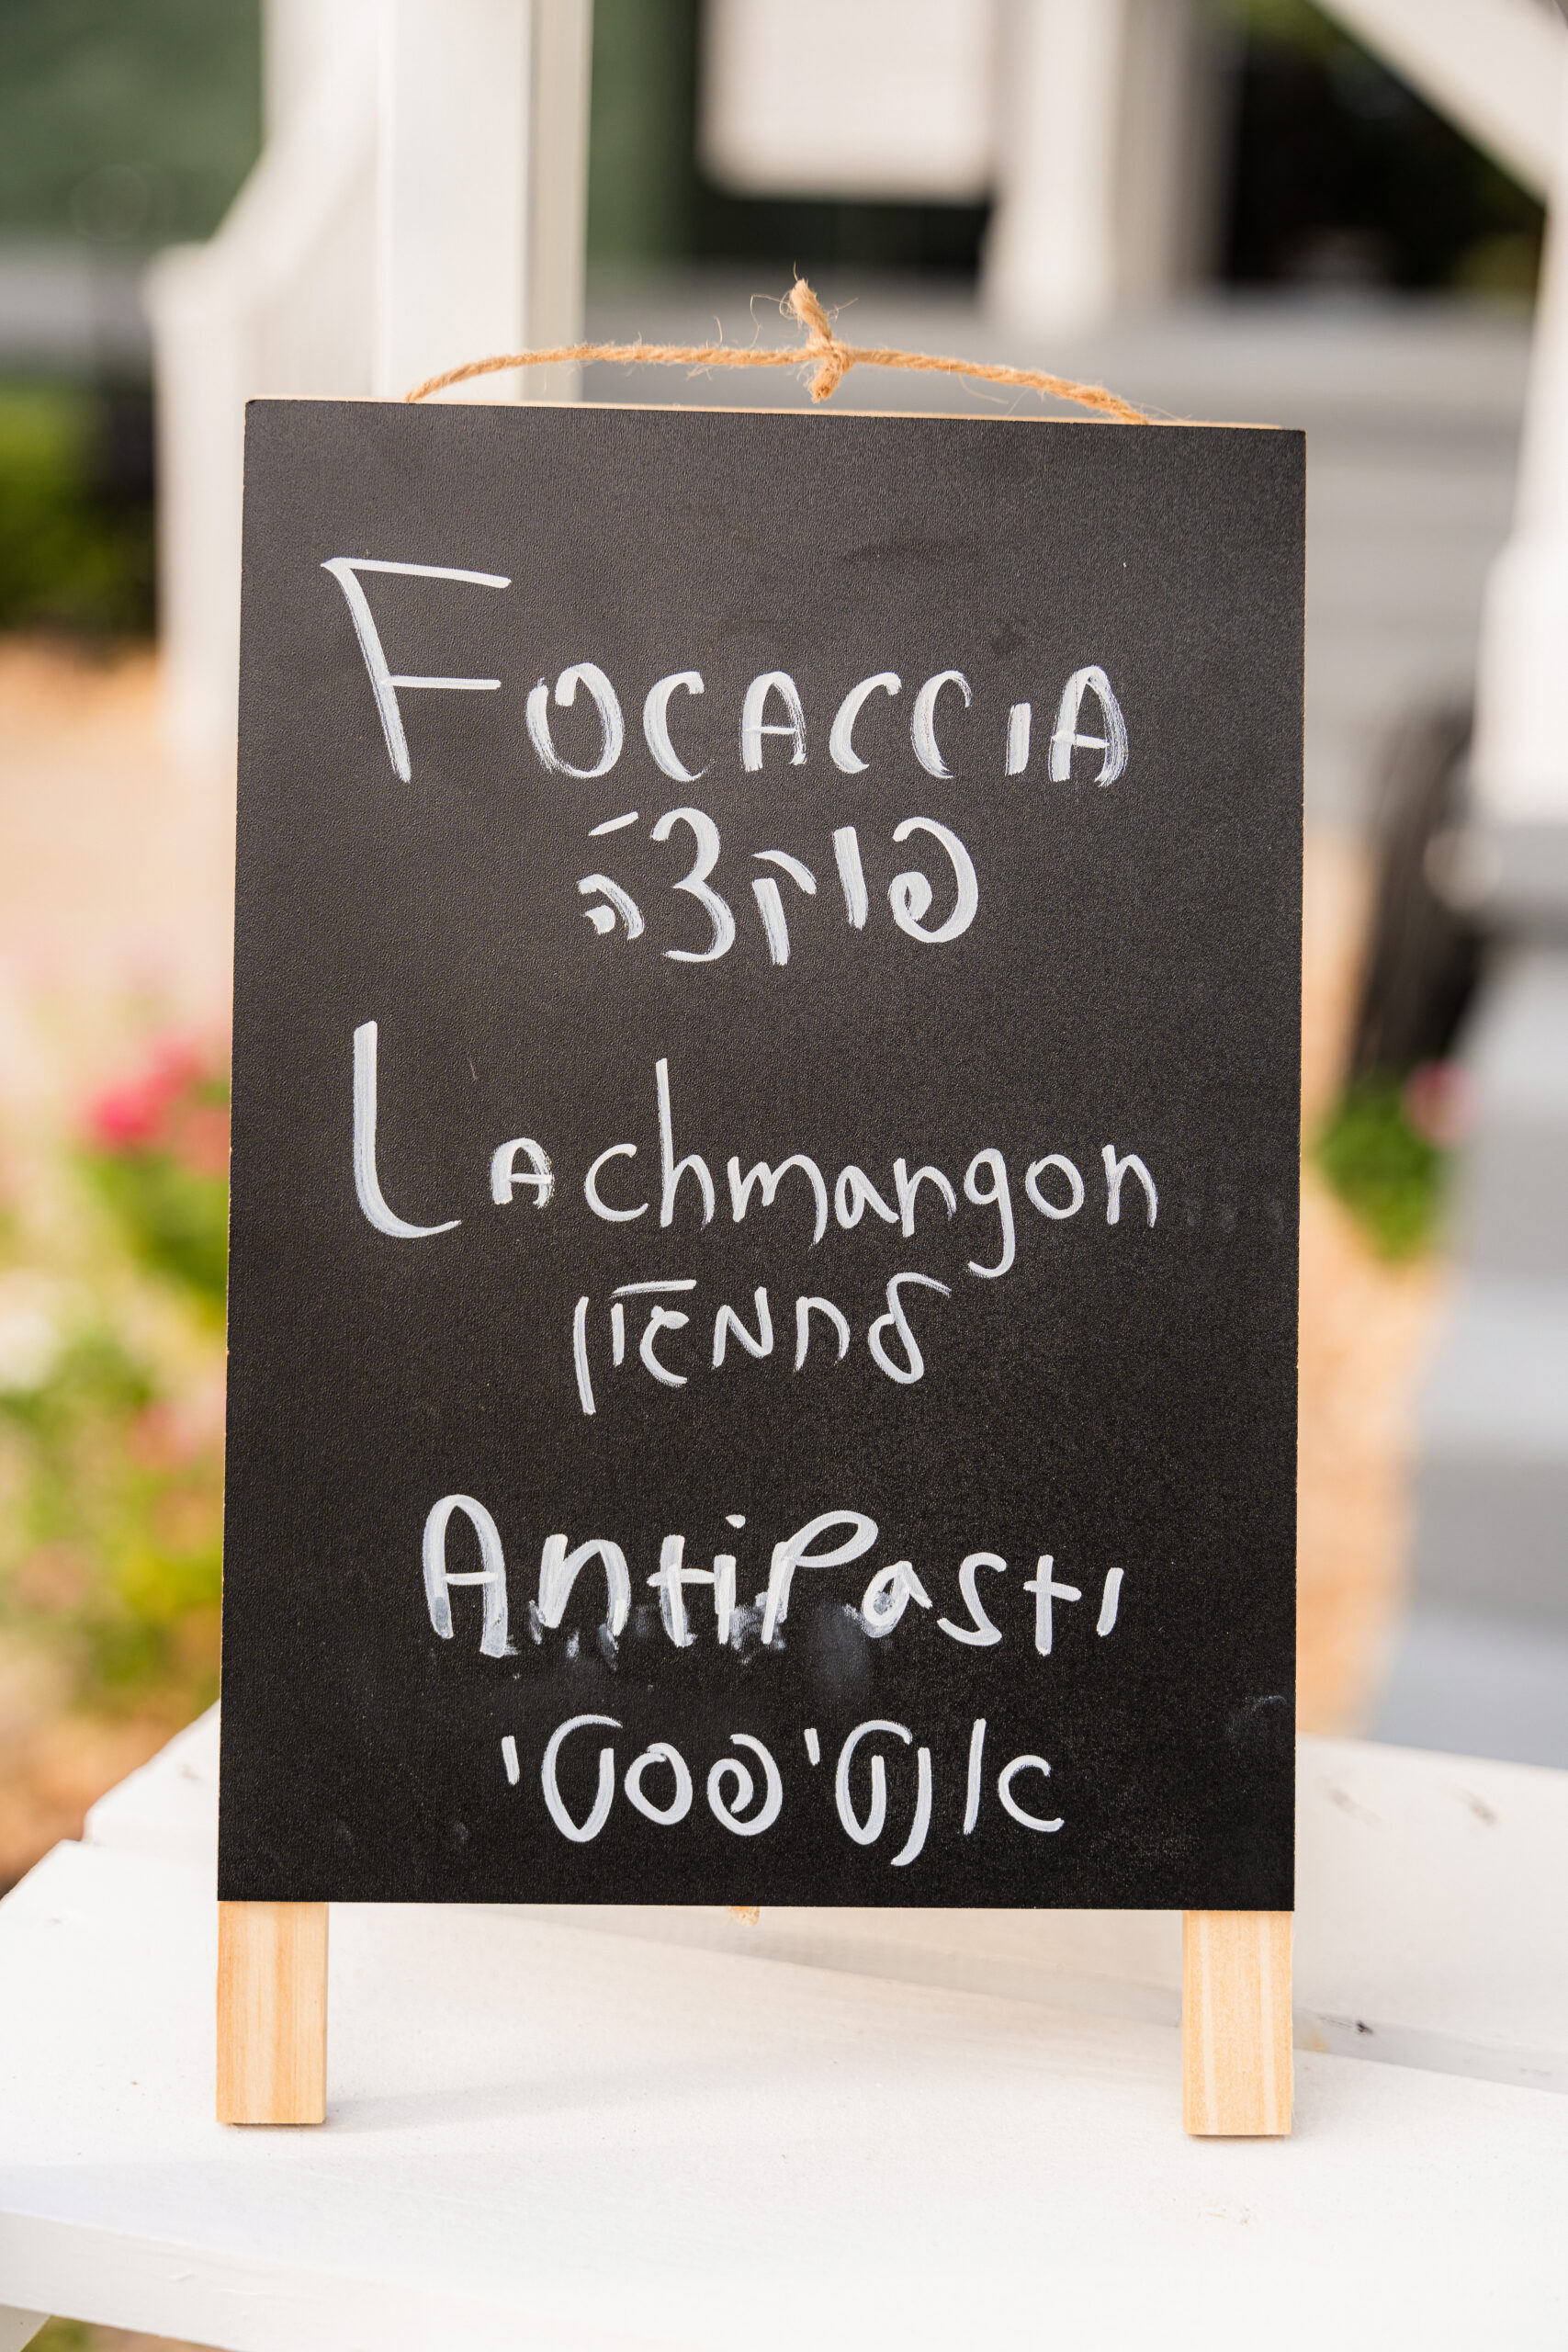 Focaccia
פוקצ'ה
Lachmangon
לחמגון
Antipasti
אנטיפסטי